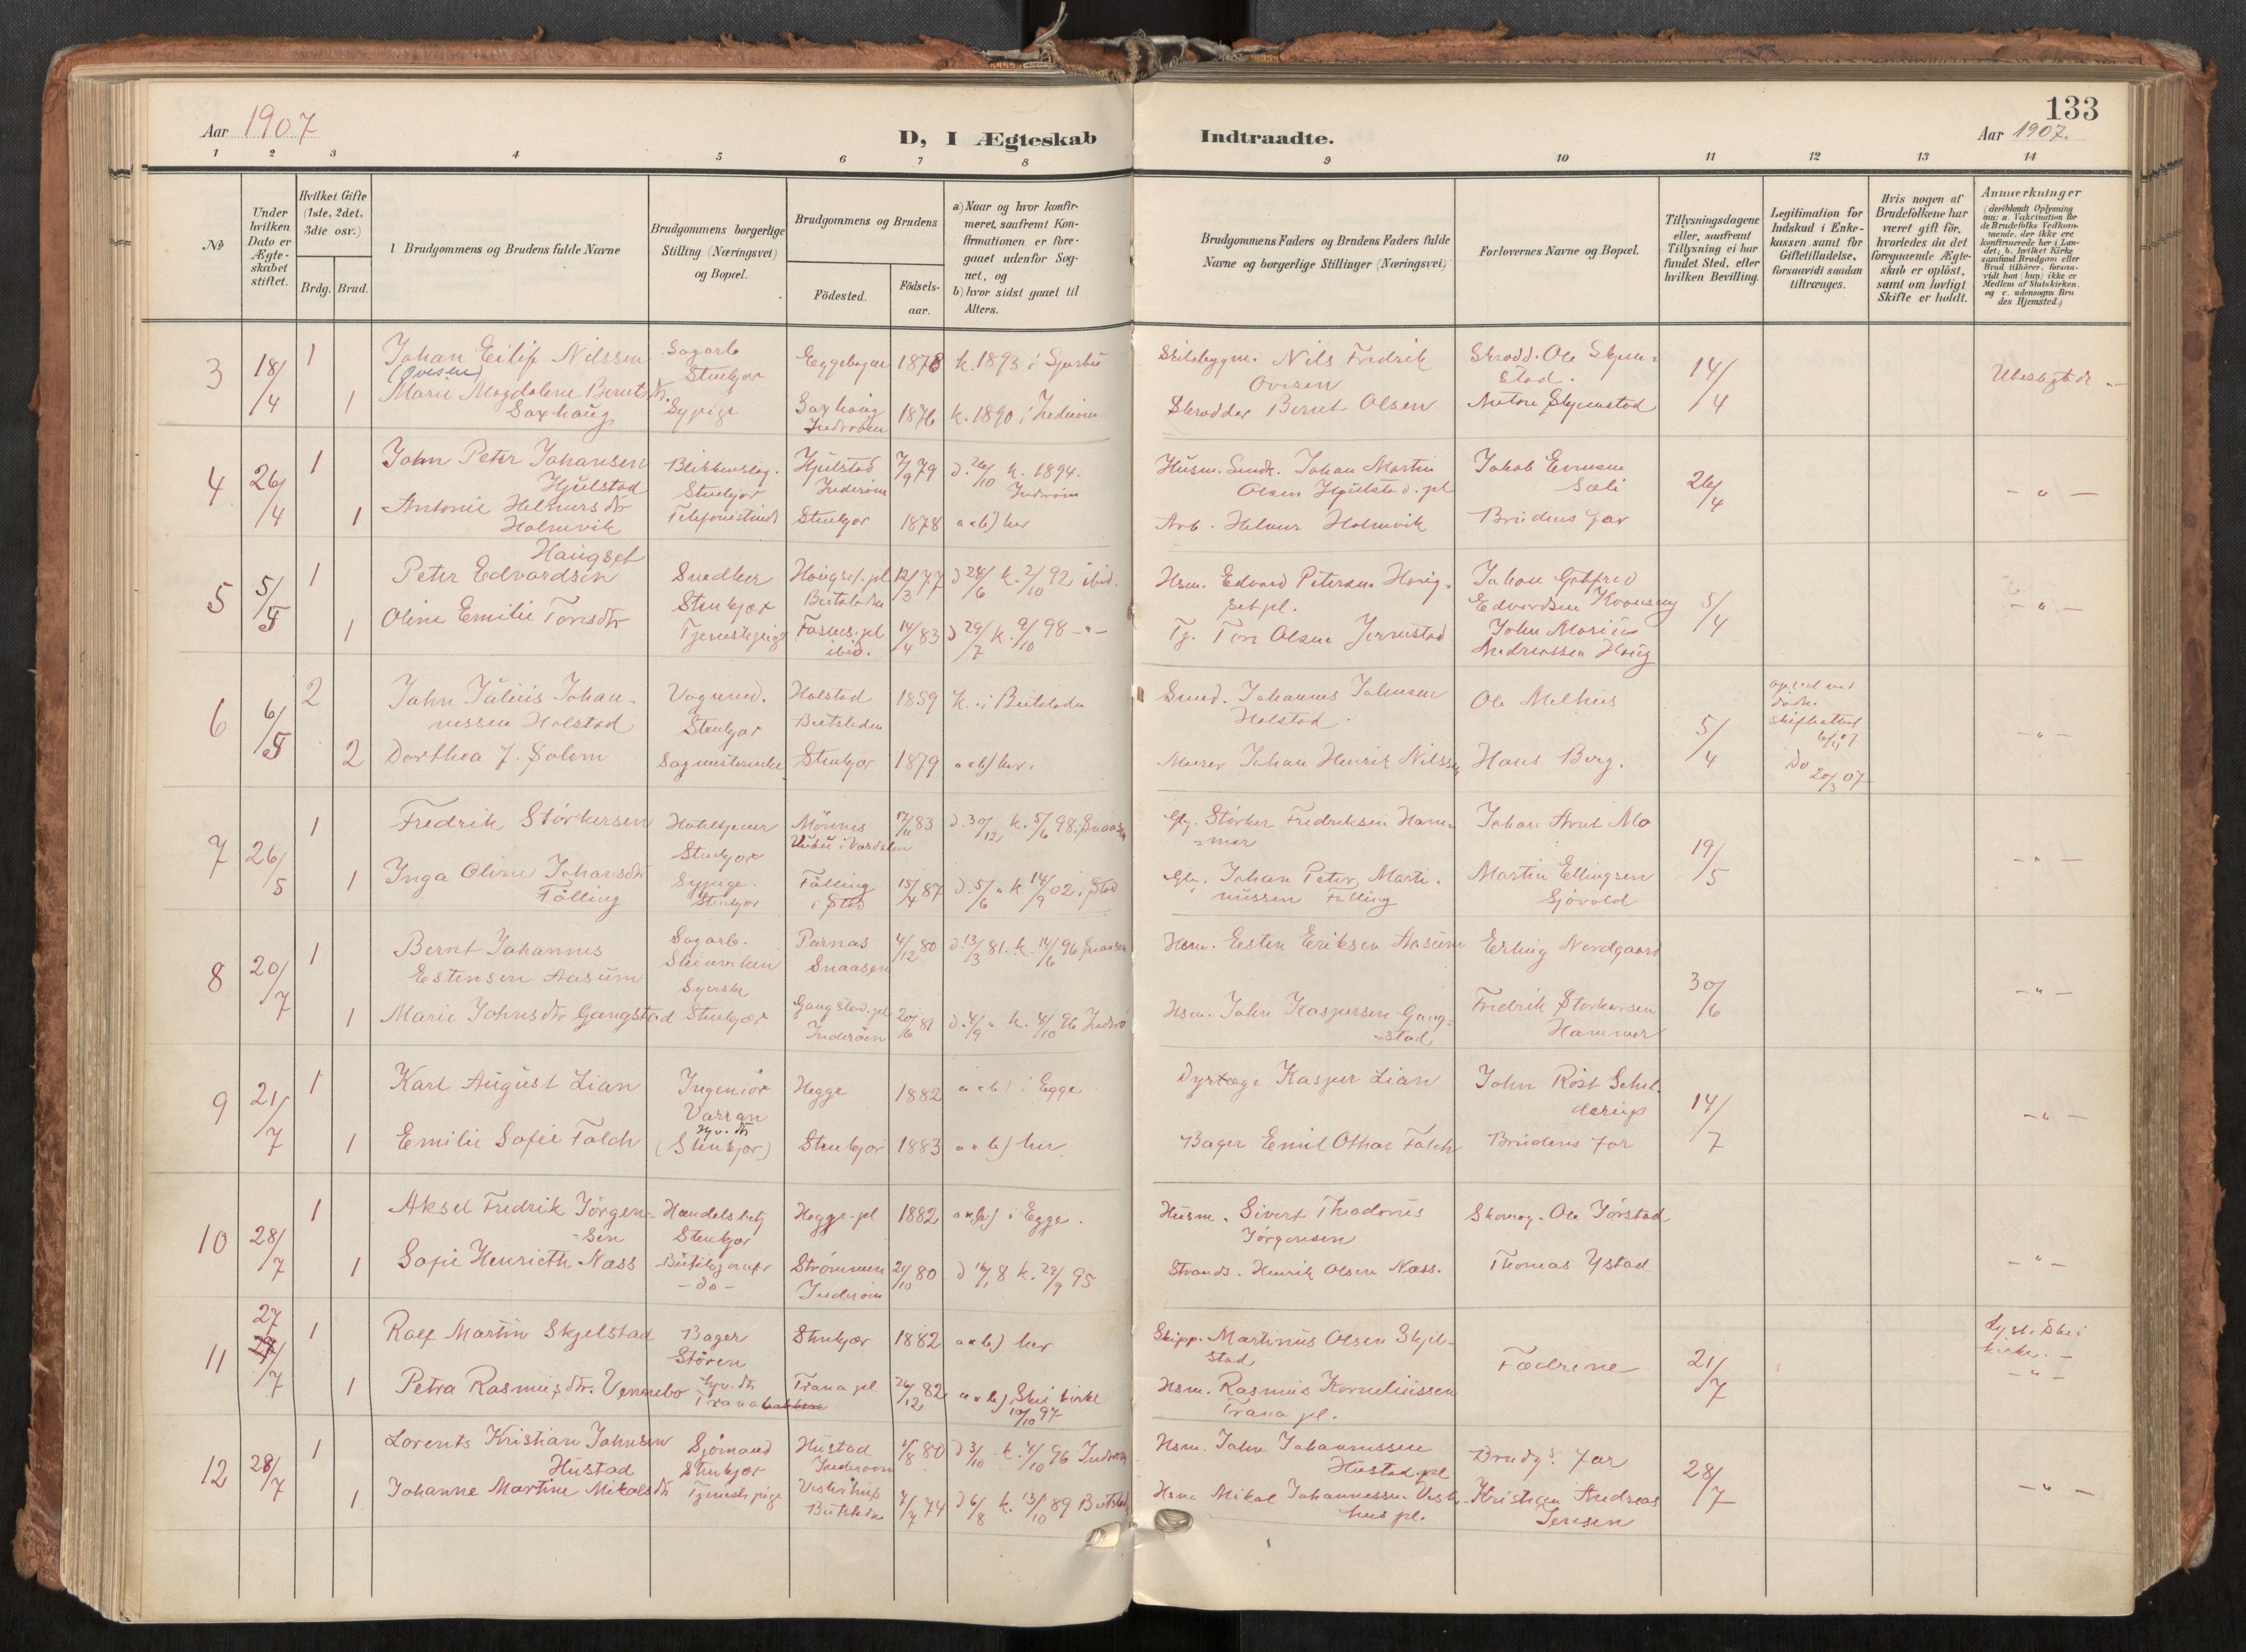 133
Aar 1907
D, I Ægteskab Indtraadte.
Aar 1907.
1 2 3 4 5 6 7 8 9 10 11 12 13 14
No
Under hvilken Dato er Ægteskabet stiftet.
Hvilket Gifte (1ste, 2det, 3die osv.)
Brdg. Brud.
Brudgommens og Brudens fulde Navne
Brudgommens borgerlige Stilling (Næringsvei) og Bopæl.
Brudgommens og Brudens
Födested.
Födsels-aar.
a) Naar og hvor konfirmeret, saafremt Konfirmationen er foregaaet udenfor Sognet, og
b) hvor sidst gaaet til Alters.
Brudgommens Faders og Brudens Faders fulde Navne og borgerlige Stillinger (Næringsvei)
Forlovernes Navne og Bopæl.
Tillysningsdagene eller, saafremt Tillysning ei har fundet Sted, efter hvilken Bevilling.
Legitimation for Indskud i Enkekassen samt for Giftetilladelse, forsaavidt saadan tiltrænges.
Hvis nogen af Brudefolkene har været gift før, hvorledes da det foregaaende Ægteskab er oplöst, samt om lovligt Skifte er holdt.
Anmærkninger
(deriblandt Oplysning om: a. Vakcination for de Brudefolks Vedkommende, der ikke ere konfirmerede her i Landet; b. hvilket Kirkesamfund Brudgom eller Brud tilhörer, forsaavidt han (hun) ikke er Medlem af Statskirken og c. udensogns Brudes Hjemsted.)
3 18/4 1 Johan Eilif Nilssen Sagarb 1878 k. 1893 i Nils Fredrik Skrædd. Ole Skjem- 14/4
(Ovesen) Stenkjær Ovesen stad.
1 Marie Magdalene Bernts dtr. Sypige Saxhaug 1876 k. 1890 i Inderøen Skrædder Bernt Olsen Anton Skjemstad
Saxhaug Inderøen
4 26/4 1 John Peter Johansen Blikkenslag. Hjulstad 7/9 79 d. 26/10 k. 1894. Husm. Smed. Johan Martin 26/4 - " -
Hjulstad Stenkjær Inderøen Inderøen Olsen Hjulstad. pl
1 Antonie Helmers dtr Telefonistinde Stenkjær 1878 a x b) her Arb. Helmer Holmvik Brudens far
Holmvik
Haugset
5 5/5 1 Peter Edvardsen Snedker Haugset. pl 12/3 77 d 24/6 k. 2/10 92 ibid. Hsm. Edvard Petersen Haug- Johan Gotfred 5/4 - " -
Stenkjær Beitstaden set pl. Edvardsen
1 Oline Emilie Tores dtr Tjenestepige ibid. 14/4 83 d 29/7 k. 9/10 98 - " - Tore Olsen John Marius
Andreassen Haug
6 6/5 2 John Julius Johan- Vognmd. Holstad 1859 k. i Beitstaden Smed. Johannes Johnsen Ole Melhus 5/4 - " -
nessen Holstad Stenkjær Beitstaden Holstad.
2 Dorthea J. Solem Stenkjær 1879 a x b) her. Murer Johan Henrik Nilssen Hans Berg. Do 20/3 07
7 26/5 1 Fredrik Størkersen Stenkjær 17/11 83 d. 30/12 k. 5/6 98 i Snaasen Størker Fredriksen Ham- Johan Arnt Mo 19/5 - " -
mer
1 Inga Oline Johans dtr Sypige. Fölling 15/4 87 d. 5/6 k 14/9 02 i Stod Johan Peter Marti- Martin Ellingsen
Fölling Stenkjær i Stod nussen Fölling Sjövold
8 20/7 1 Bernt Johannes Sagarb. Parnas 4/12 80 d. 13/3 81. k. 14/6 96 Snaasen Hsm. Esten Eriksen Aasum Erling Nordgaard 30/6 - " -
Estensen Aasum Snaasen
1 Marie Johns dtr Gangstad Syerske Stenkjær Gangstad. pl 20/6 81 d. 4/9 k. 4/10 96 Hsm. John Kaspersen Gang- Fredrik Størkersen
Inderøen stad Hammer
9 21/7 1 Karl August Lian Ingeniør Hegge 1882 a x b) i Egge Dyrlæge Kasper Lian John Röst Schel- 14/7 - " -
Varran derup
1 Emilie Sofie Falch (Stenkjær) Stenkjær 1883 a x b) her Bager Emil Othar Falch Brudens far
10 28/7 1 Aksel Fredrik Jørgen- Handelsbetj Hegge. pl 1882 a x b) i Egge. Husm. Sivert Theodorius Skomag. Ole Jørstad - " -
sen Stenkjær Jörgensen
1 Sofie Henriette Næss - do - Strømmen 21/10 80 d 16/1 8 k. 29/9 95 Strands. Henrik Olsen Næss. Thomas Ystad
Inderøen
11 27/7 1 Rolf Martin Skjelstad Bager Stenkjær 1882 a x b) her Skipp. Martinus Olsen Skjel- Fædrene 21/7
Støren stad kirke. -
1 Petra Rasmus dtr. Vennebo Trana pl 26/12 82 a x b) kirke 10/10 97 Hsm. Rasmus Korneliussen - " -
Trana pl.
12 28/7 1 Lorents Kristian Johnsen Sjømand Hustad 80 d 3/10 k. 4/10 96 Inderøen Hsm. John Johannessen Brudg.s far 28/7 - " -
Hustad Stenkjær Inderøen Hustad. pl
1 Johanne Martine Mikals dtr Tjenestepige Vesterhus 74 d 6/8 k. 13/10 89 Beitstad Hsm. Mikal Johannessen Vester- Kristian Andreas
Beitstaden hus pl. Jensen